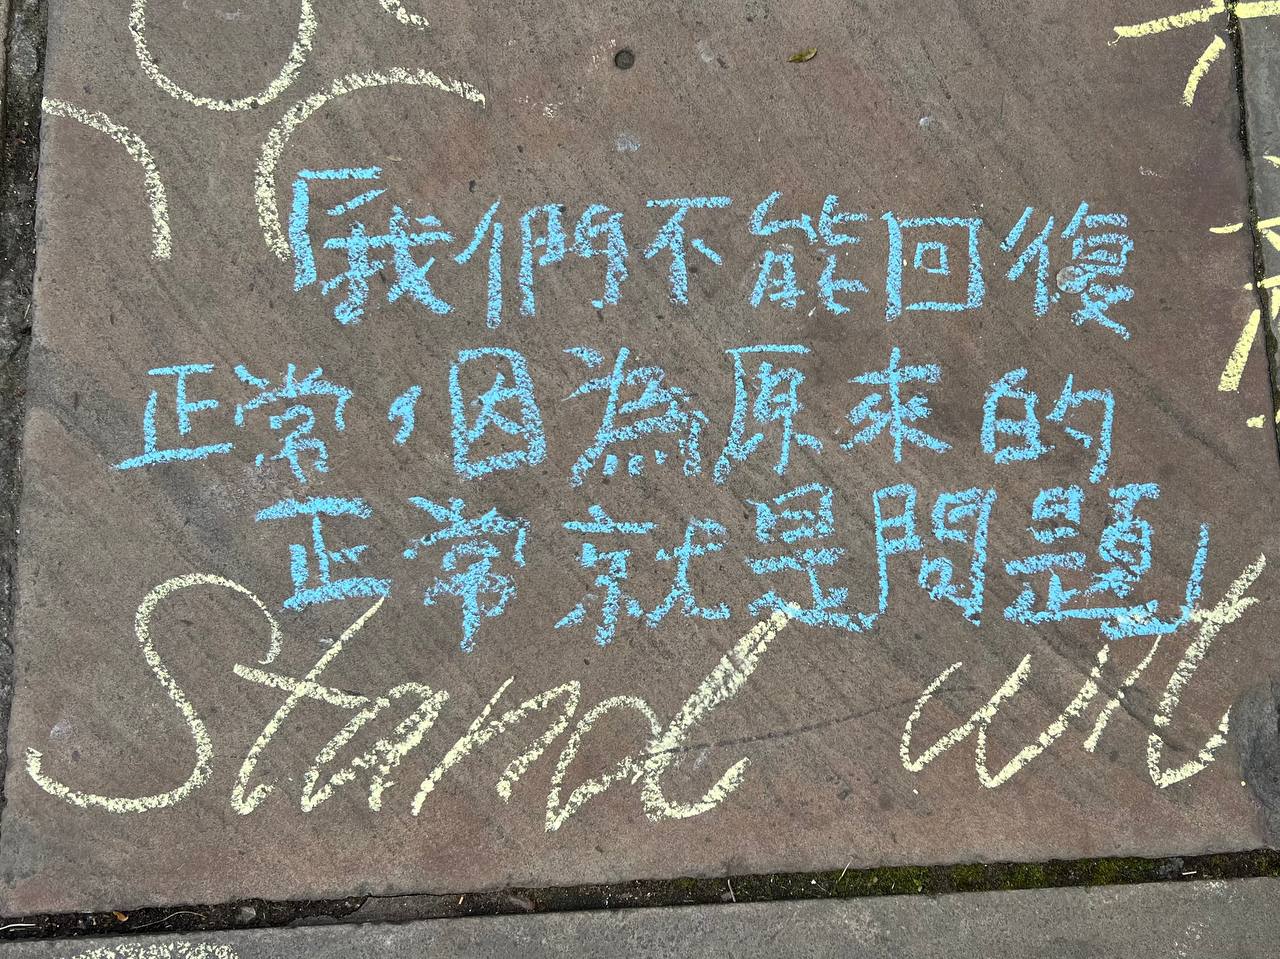 「我們不能回復
正常，因為原來的
正常就是問題」
Stand wit